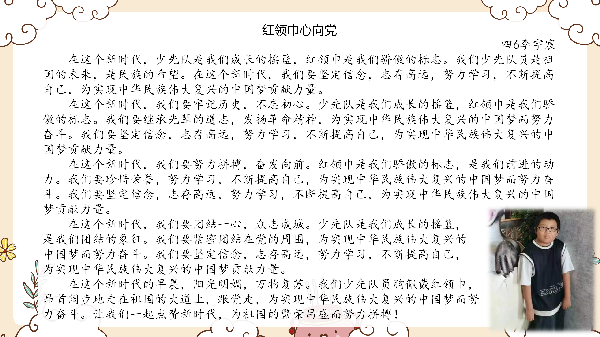 红领巾心向党
四6李宇宸
在这个新时代，少先队是我们成长的摇篮，红领巾是我们骄傲的标志。我们少先队员是祖
国的未来，是民族的希望。在这个新时代，我们要坚定信念，志存高远，努力学习，不断提高
自己，为实现中华民族伟大复兴的中国梦而努力奋斗。
在这个新时代，我们要牢记历史，不忘初心。少先队是我们成长的摇篮，红领巾是我们骄
傲的标志。我们要继承先辈的遗志，发扬革命精神，为实现中华民族伟大复兴的中国梦而努力
奋斗。我们要坚定信念，志存高远，努力学习，不断提高自己，为实现中华民族伟大复兴的中
国梦贡献力量。
在这个新时代，我们要努力拼搏，奋发向前。红领巾是我们骄傲的标志，是我们前进的动
力。我们要珍惜荣誉，努力学习，不断提高自己，为实现中华民族伟大复兴的中国梦而努力奋
斗。我们要坚定信念，志存高远，努力学习，不断提高自己，为实现中华民族伟大复兴的中国
梦贡献力量。
在这个新时代，我们要团结一心，众志成城。少先队是我们成长的摇篮，
是我们团结的象征。我们要紧密团结在党的周围，为实现中华民族伟大复兴的
中国梦而努力奋斗。我们要坚定信念，志存高远，努力学习，不断提高自己，
为实现中华民族伟大复兴的中国梦贡献力量。
在这个新时代的早晨，阳光明媚，万物复苏。我们少先队员骄傲戴红领巾，
昂首阔步地走在祖国的大道上，跟党走，为实现中华民族伟大复兴的中国梦而努
力奋斗。让我们一起点赞新时代，为祖国的繁荣昌盛而努力拼搏！